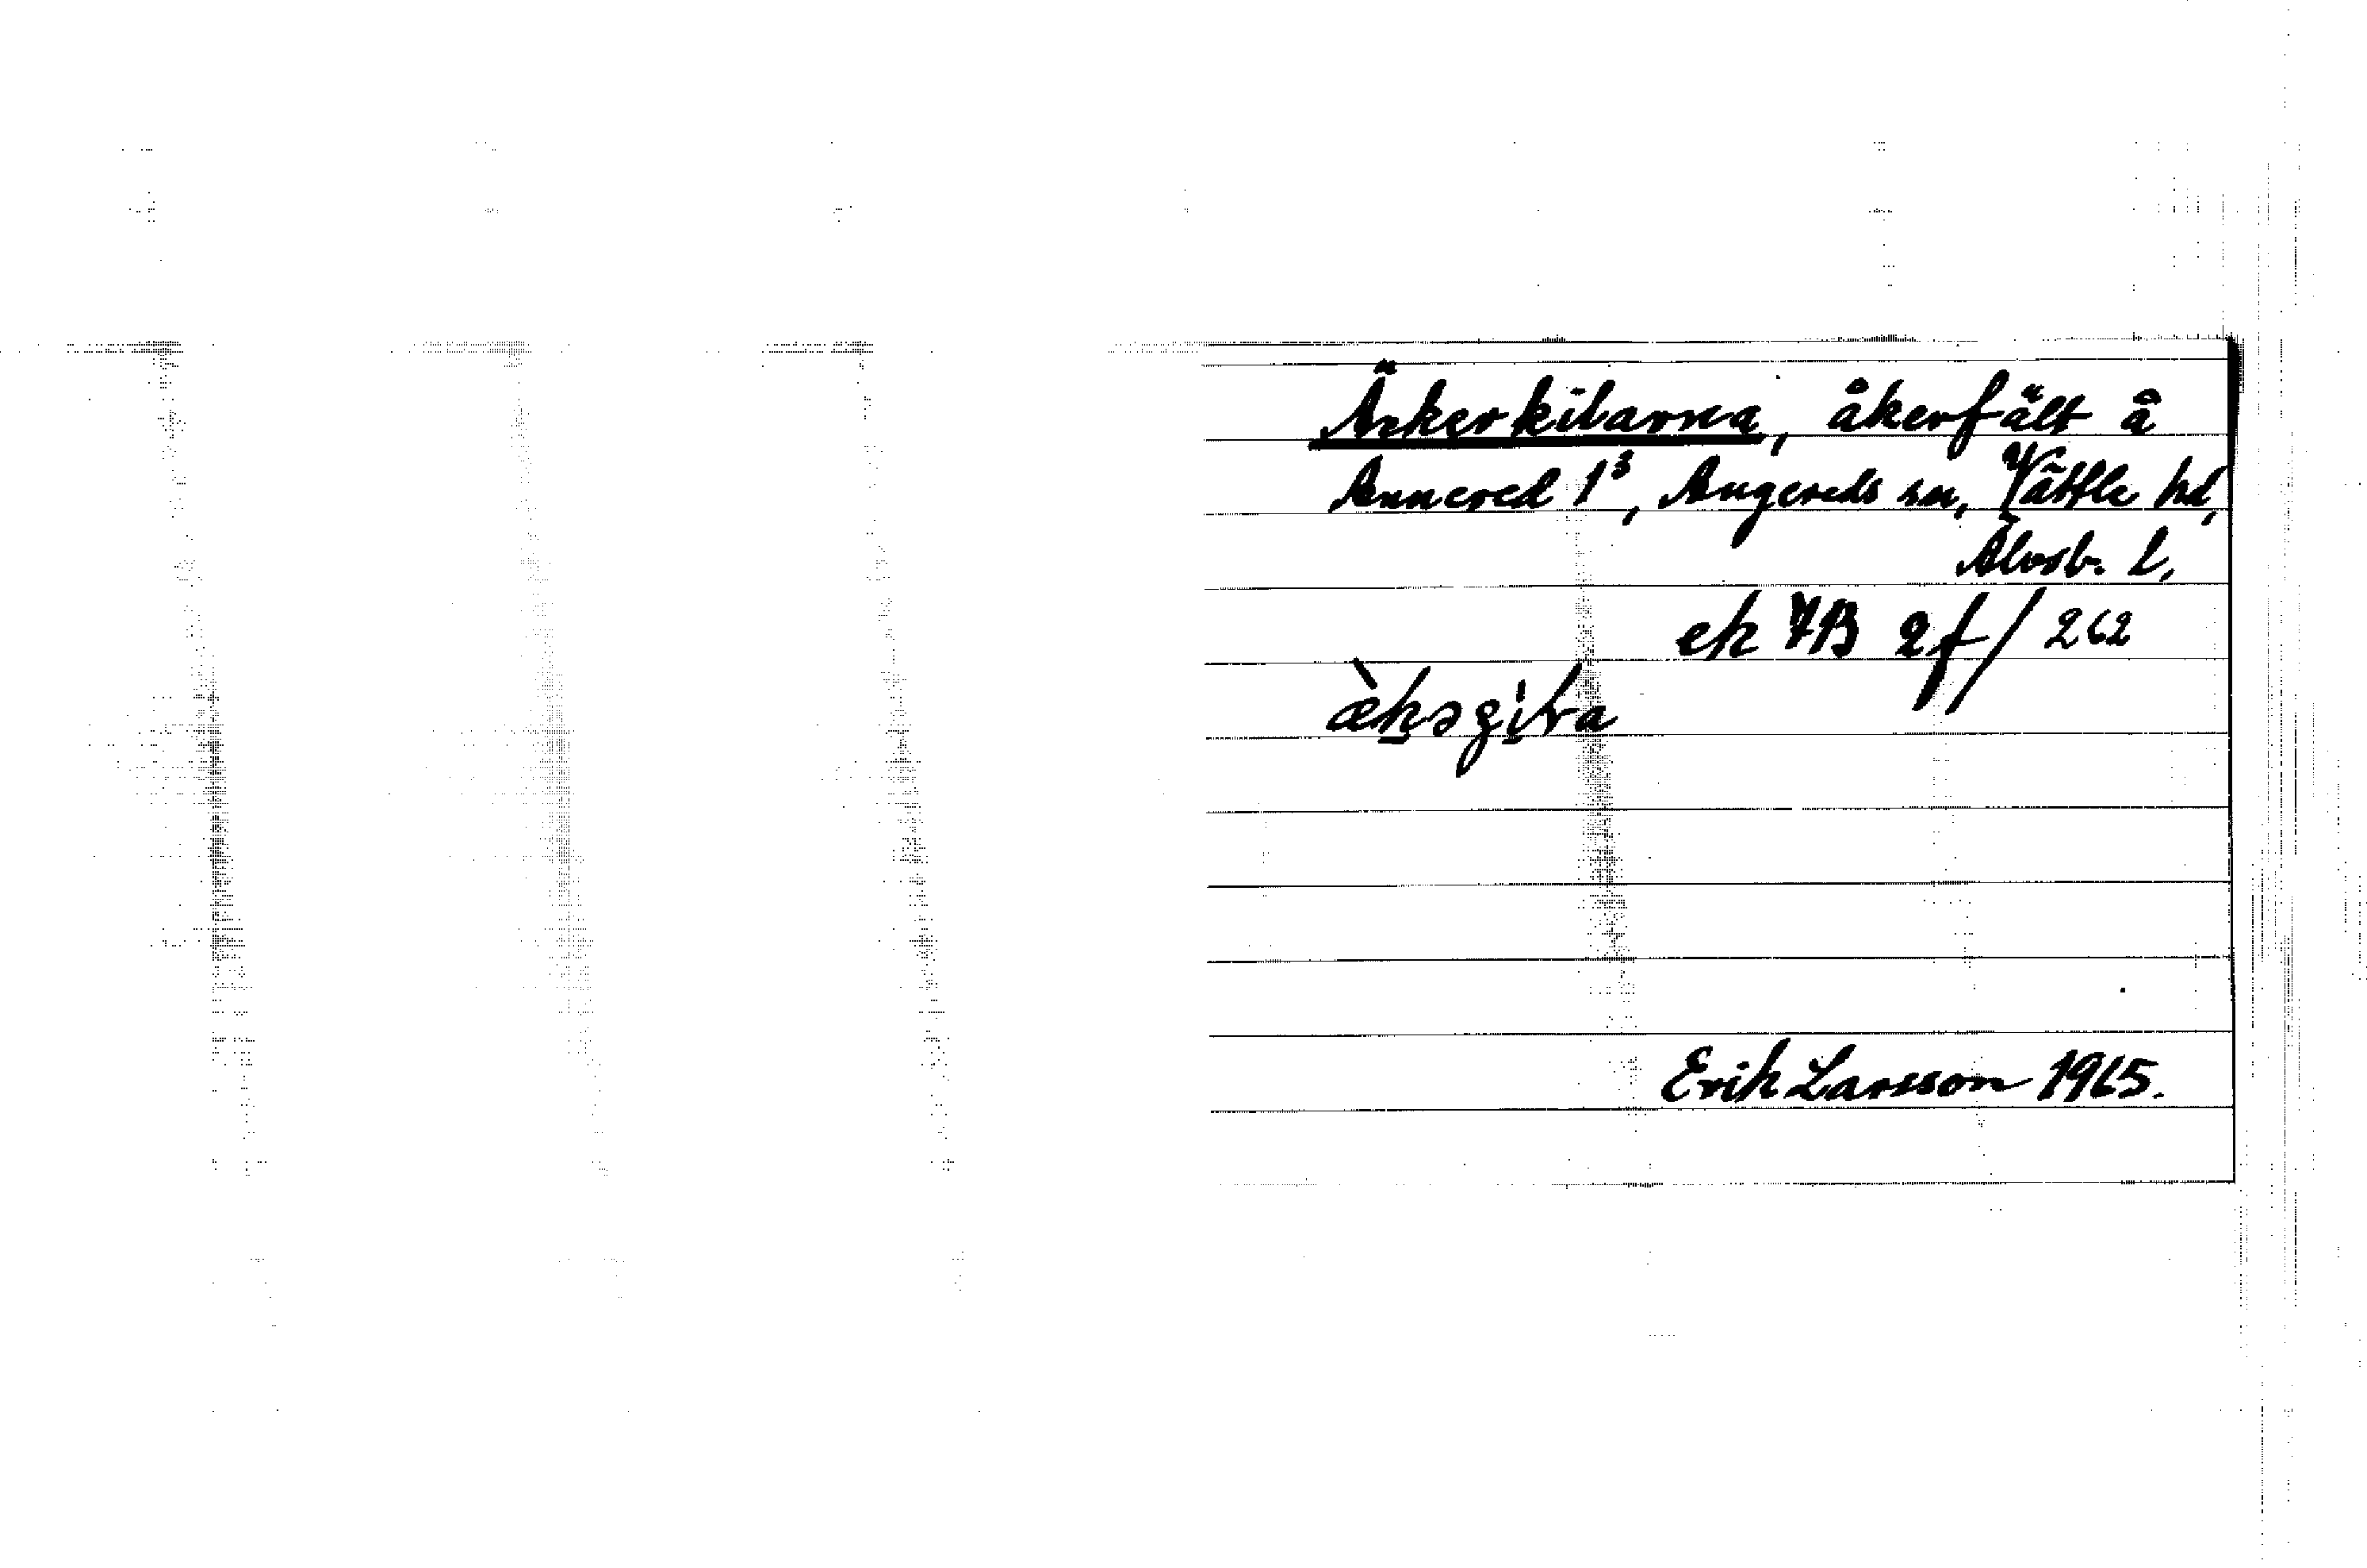 Ärkerkilarna, åkerfält å
Annered 1³, Angereds sn, Vättle hd,
Älvsb. l.
ek 7B 2f/262
Erik Larsson 1965.